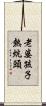 老婆孩子
熱炕頭